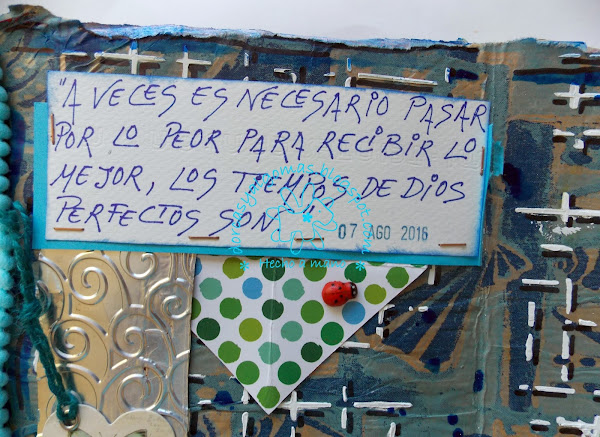 "A VECES ES NECESARIO PASAR
POR LO PEOR PARA RECIBIR LO
MEJOR, LOS TIEMPOS DE DIOS
PERFECTOS SON"
07 AGO 2016
Hecho a mano